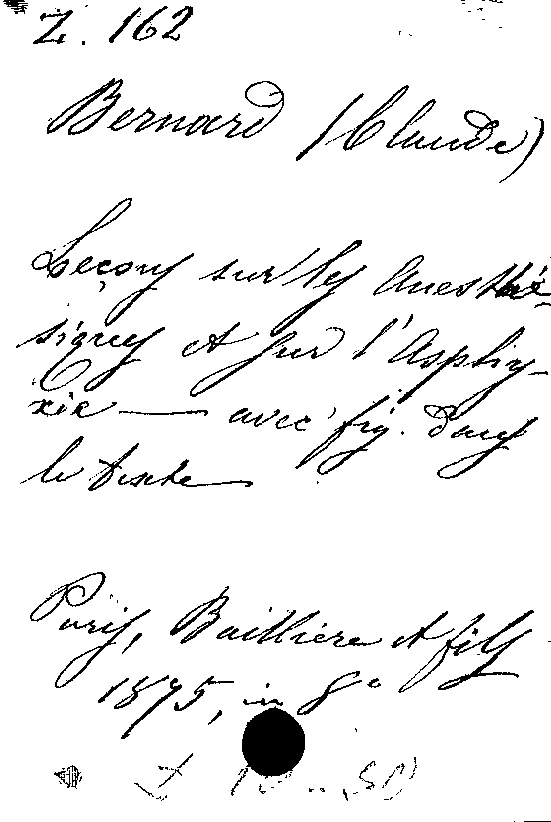 Z. 162
Bernard (Claude)
Leçons sur les Anesthé-
siques et sur l'Asphy-
xie — avec fig. dans
le texte
Paris, Baillière et fils
1875, in 8°